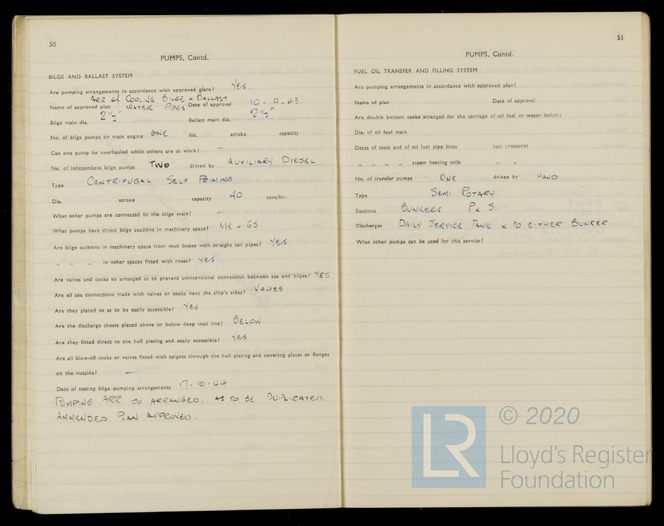 50
PUMPS, Contd.
BILGE AND BALLAST SYSTEM
Are pumping arrangements in accordance with approved plans? YES.
ARR OF COOLING, BILGE & BALLAST
Name of approved plan " WATER PIPES Date of approval 10-9-43
Bilge main dia. 2½" Ballast main dia. 2½"
No. of bilge pumps on main engine ONE dia. stroke capacity
Can one pump be overhauled while others are at work? —
No. of independent bilge pumps TWO driven by AUXILIARY DIESEL
Type CENTRIFUGAL SELF PRIMING
Dia. stroke capacity 40 tons/hr.
What other pumps are connected to the bilge main? —
What pumps have direct bilge suctions in machinery space? ME & GS.
Are bilge suctions in machinery space from mud boxes with straight tail pipes? YES.
" " " in other spaces fitted with roses? YES
Are valves and cocks so arranged as to prevent unintentional connection between sea and bilges? YES
Are all sea connections made with valves or cocks next the ship's sides? VALVES
Are they placed so as to be easily accessible? YES
Are the discharge chests placed above or below deep load line? BELOW
Are they fitted direct to the hull plating and easily accessible? YES
Are all blow-off cocks or valves fitted with spigots through the hull plating and covering plates or flanges
on the outside? —
Date of testing bilge pumping arrangements 17-10-44
PUMPING ARR SO ARRANGED. AS TO BE DUPLICATED.
AMMENDED PLAN APPROVED.
51
PUMPS, Contd.
FUEL OIL TRANSFER AND FILLING SYSTEM
Are pumping arrangements in accordance with approved plan?
Name of plan Date of approval
Are double bottom tanks arranged for the carriage of oil fuel or water ballast?
Dia. of oil fuel main
Dates of tests and of oil fuel pipe lines test pressures
" " " " steam heating coils " "
No. of transfer pumps ONE driven by HAND
Type SEMI ROTARY
Suctions BUNKERS P & S.
Discharges DAILY SERVICE TANK & TO EITHER BUNKER
What other pumps can be used for this service?
LR
© 2020
Lloyd's Register
Foundation